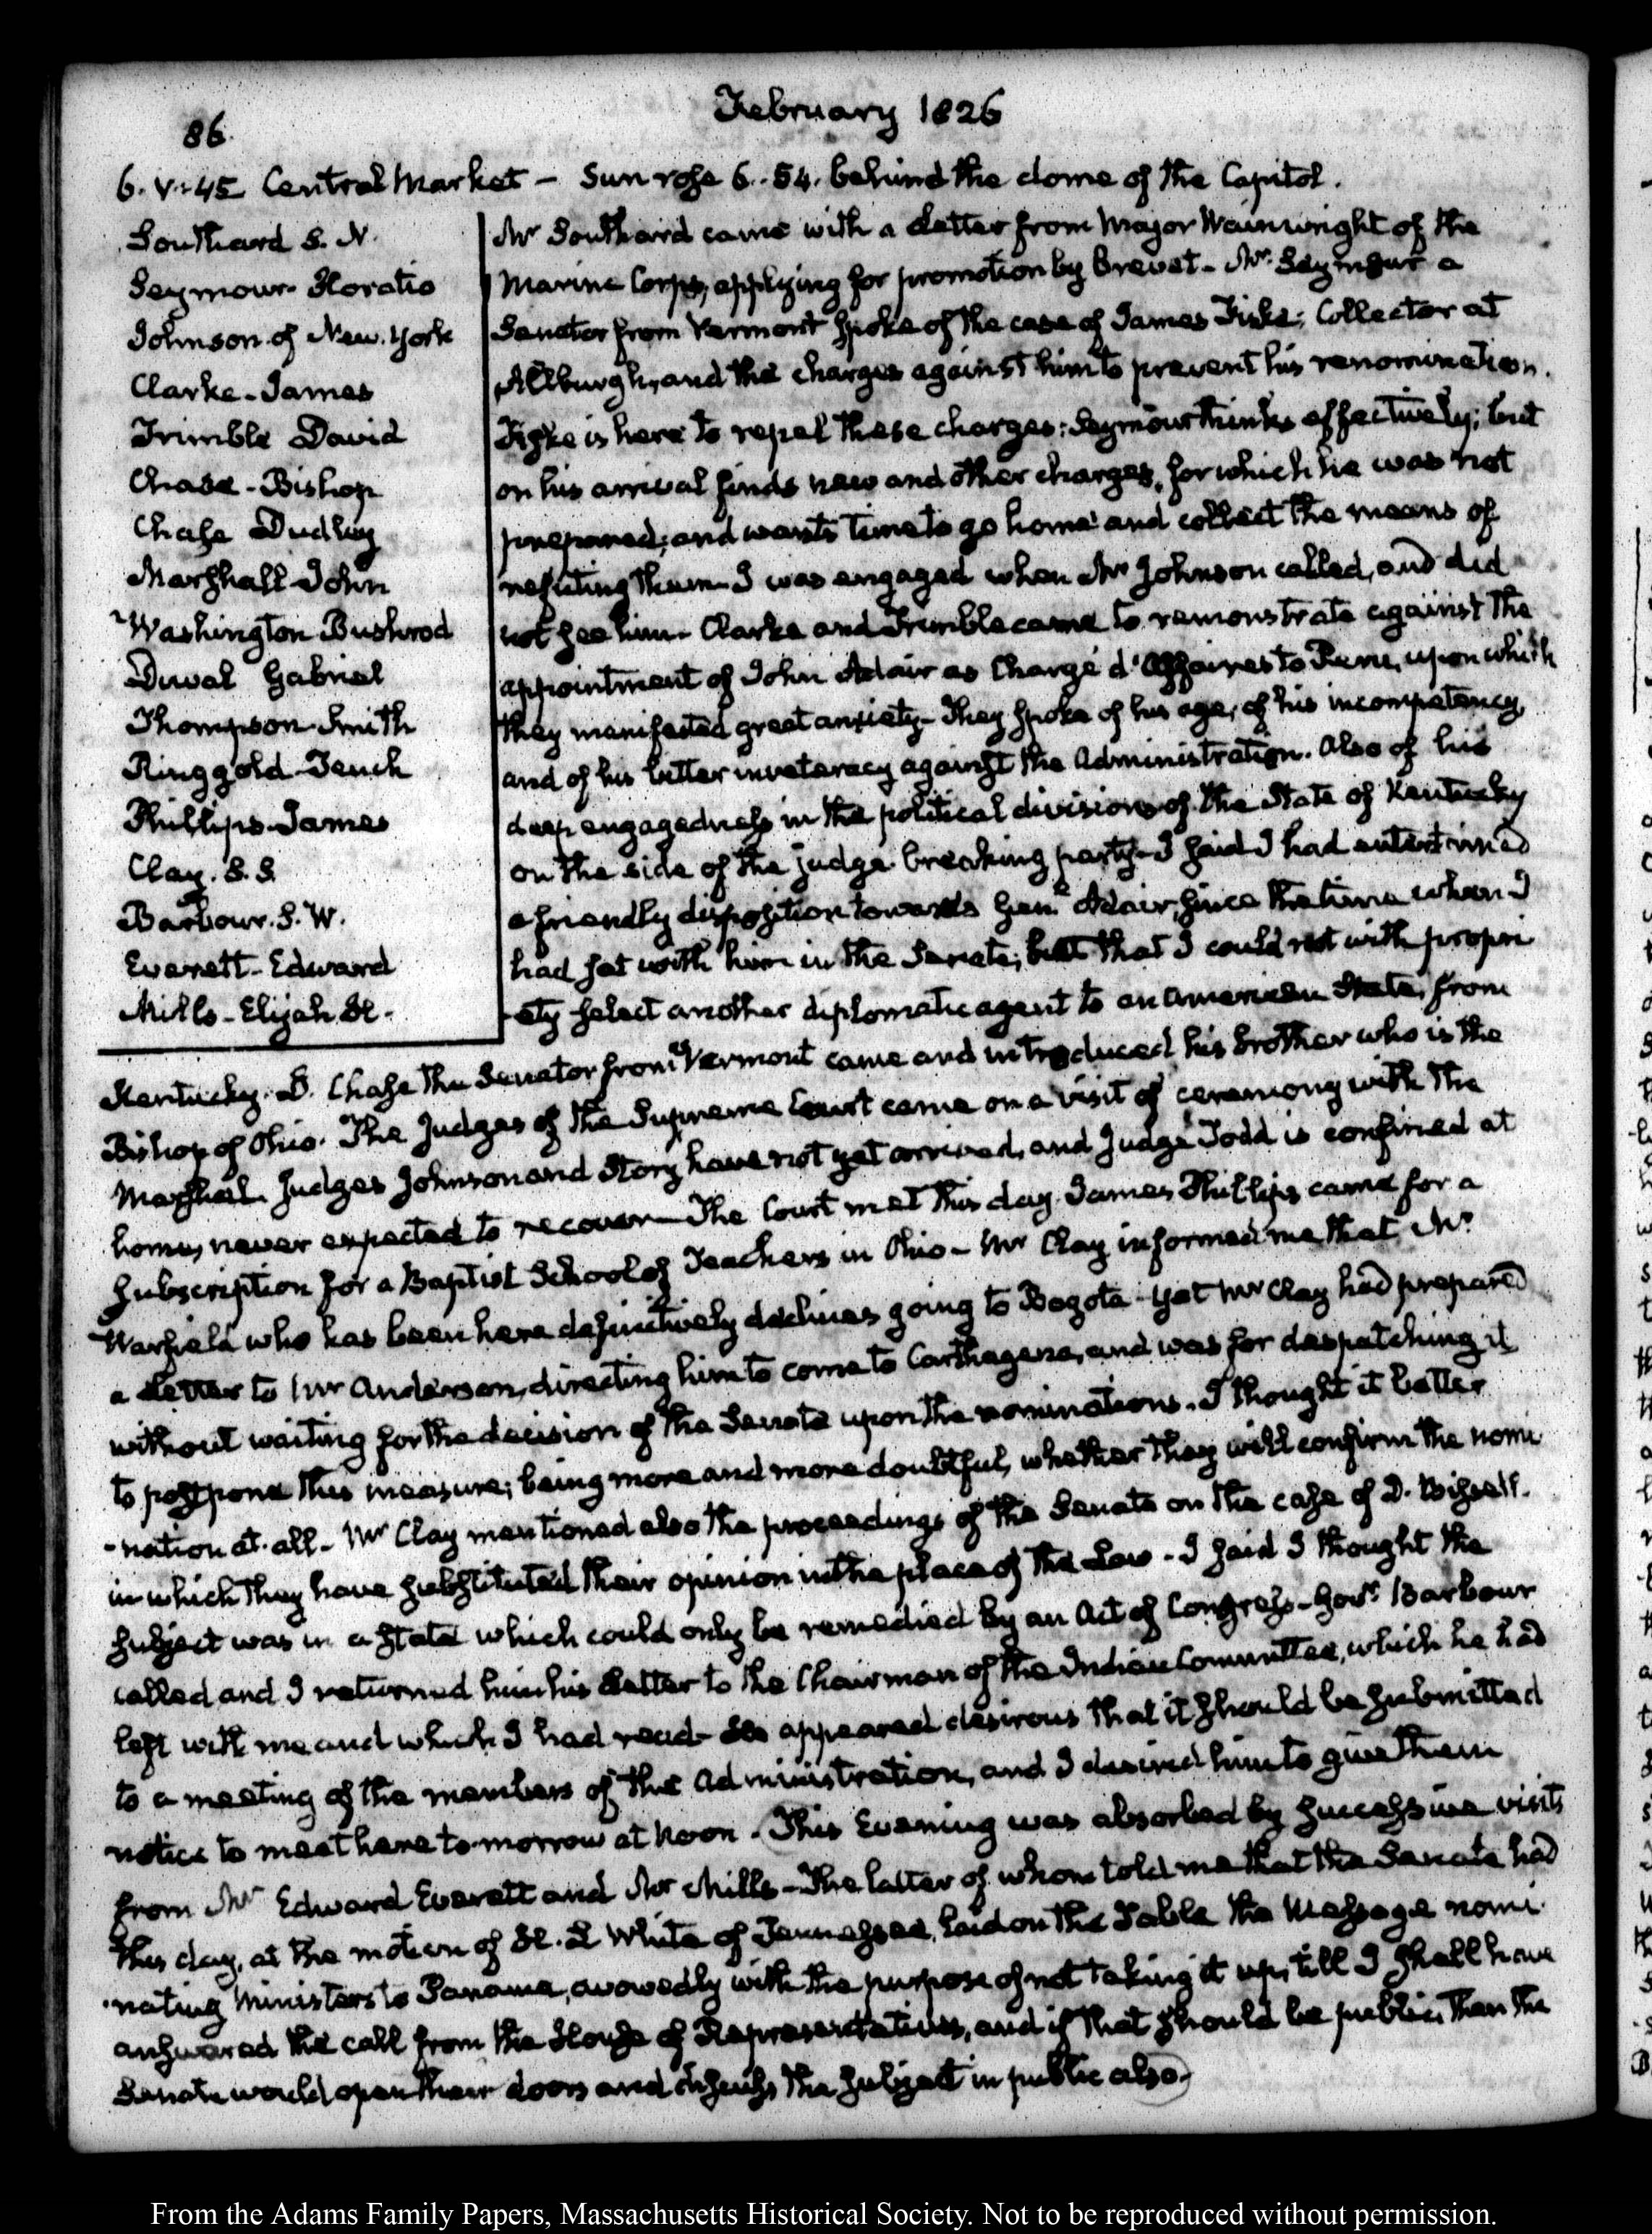 February 1826
86.
6. V:45 Central Market - Sun rose 6..54. behind the dome of the Capitol.
Southard S. N.
Seymour Horatio
Johnson of New. York
Clarke - James
Trimble David
Chase - Bishop
Chase Dudley
Marshall John
Washington Bushrod
Duval Gabriel
Thompson Smith
Ringgold Tench
Phillips James
Clay. S. S.
Barbour. S. W.
Everett - Edward
Mills - Elijah H. -
Mr Southard came with a Letter from Major Wainwright of the
Marine Corps, applying for promotion by Brevet - Mr Seymour a
Senator from Vermont spoke of the case of James Fiske; Collector at
Allburgh, and the charges against him to prevent his renomination.
Fiske is here to repel these charges: Seymour thinks effectively; but
on his arrival finds new and other charges, for which he was not
prepared; and wants time to go home and collect the means of
refuting them - I was engaged when Mr Johnson called, and did
not see him - Clarke and Trimble came to remonstrate against the
appointment of John Adair as Chargé d'Affaires to Peru, upon which
they manifested great anxiety - They spoke of his age, of his incompetency,
and of his bitter inveteracy against the Administration. Also of his
deep engagedness in the political divisions of the State of Kentucky
on the side of the judge breaking party - I said I had entertained
a friendly disposition towards Genl. Adair, since the time when I
had sat with him in the Senate; but that I could not with propri
-ety select another diplomatic agent to an American State, from
Kentucky. D. Chase the Senator from Vermont came and introduced his brother who is the
Bishop of Ohio. The Judges of the Supreme Court came on a visit of ceremony with the
Marshal. Judges Johnson and Story have not yet arrived, and Judge Todd is confined at
home, never expected to recover - The Court met this day. James Phillips came for a
subscription for a Baptist School of Teachers in Ohio - Mr Clay informed me that Mr
Warfield who has been here definitively declines going to Bogota - yet Mr Clay had prepared
a Letter to Mr Anderson, directing him to come to Carthagena, and was for despatching it
without waiting for the decision of the Senate upon the nominations. I thought it better
to postpone this measure; being more and more doubtful, whether they will confirm the nomi
-nation at all - Mr Clay mentioned also the proceedings of the Senate on the case of D. Bissell.
in which they have substituted their opinion in the place of the Law - I said I thought the
subject was in a state which could only be remedied by an Act of Congress - Govr. Barbour
called and I returned him his Letter to the Chairman of the Indian Committee, which he had
left with me and which I had read - He appeared desirous that it should be submitted
to a meeting of the members of the Administration, and I desired him to give them
notice to meet here to-morrow at Noon. This Evening was absorbed by successive visits
from Mr Edward Everett and Mr Mills - The latter of whom told me that the Senate had
this day, at the motion of H. L White of Tennessee, laid on the Table the Message nomi
-nating Ministers to Panama, avowedly with the purpose of not taking it up, till I shall have
answered the call from the House of Representatives, and if that should be public, then the
Senate would open their doors and discuss the subject in public also.
From the Adams Family Papers, Massachusetts Historical Society. Not to be reproduced without permission.